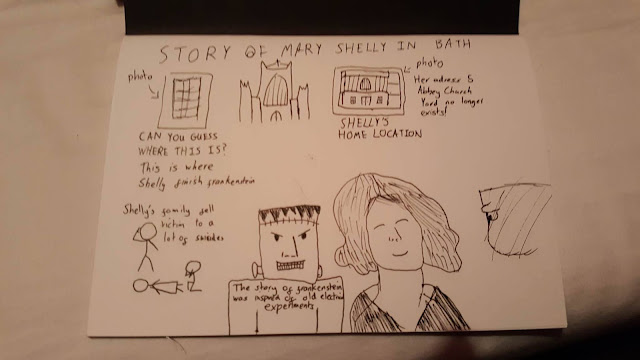 STORY OF MARY SHELLY IN BATH
photo
CAN YOU GUESS
WHERE THIS IS?
This is where
Shelly finish frankenstein
photo
Her adress 5
Abbey Church
Yard no longer
exists!
SHELLY'S
HOME LOCATION
Shelly's family fell
victim to a
lot of suicides
The story of frankenstein
was of old
experiments